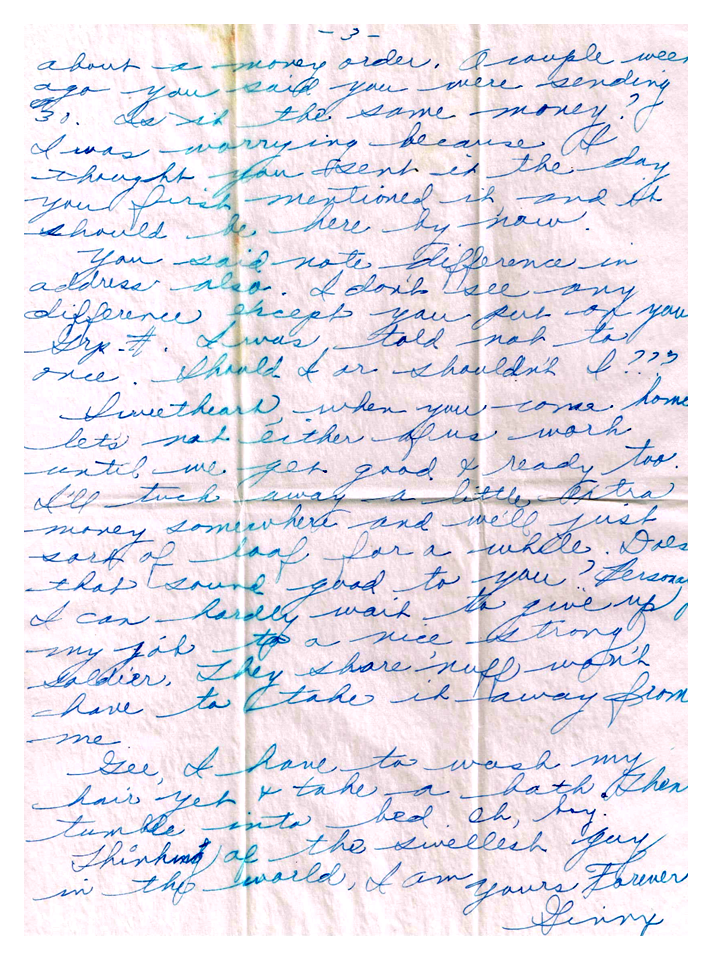 -3-
about a money order. A couple wee
ago you said you were sending
30. Is it the same money?
I was worrying because I
thought you sent it the day
you first mentioned it and it
should be here by now.
You said note difference in
address also. I don't see any
difference except you put on you
Grp. #. I was told not to
once. Should I or shouldn't I???
Sweetheart, when you come home
lets not either of us work
until we get good & ready too.
I'll tuck away a little extra
money somewhere and we'll just
sort of loaf for a while. Does
that sound good to you? Persona
I can hardly wait to give up
my job to a nice strong
soldier. They shore 'nuff won't
have to take it away from
me.
Gee, I have to wash my
hair yet & take a bath. Then
tumble into bed. Oh, boy.
Thinking of the swellest guy
in the world, I am yours Forever
Ginny